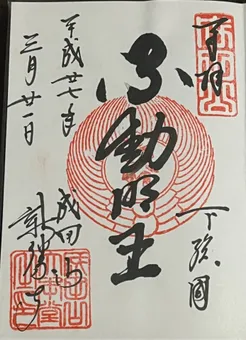 奉拝
下総國
不動明王
成田山
新勝寺
平成廿七年
三月廿一日